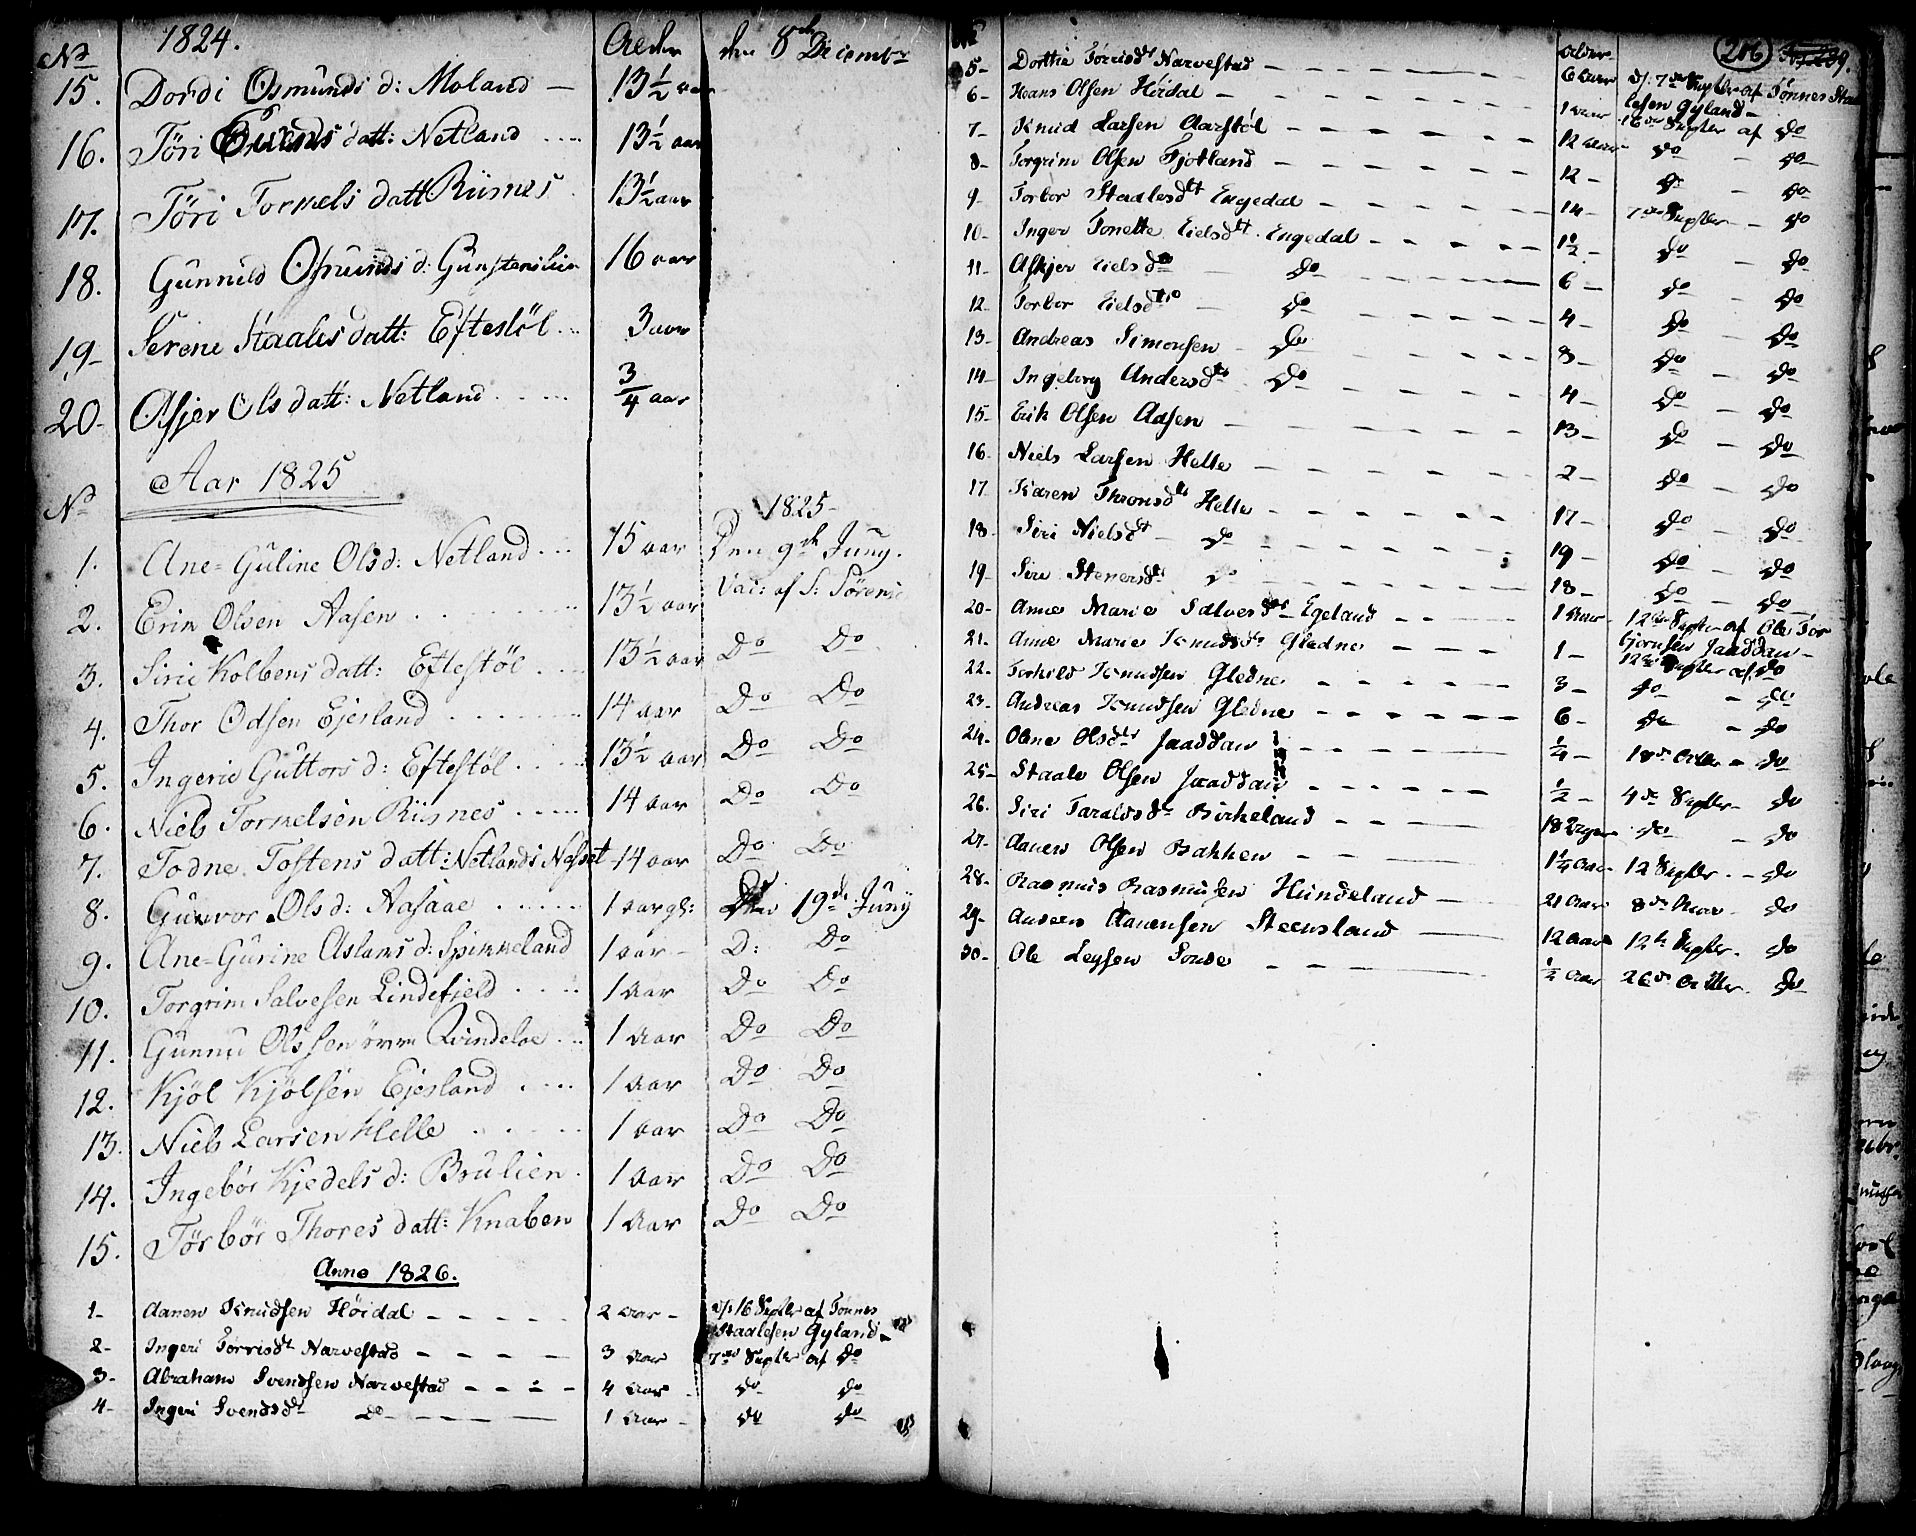 No 1824. Alder den 8de Decembr
15. Dordi Osmunds d: Moland — 13½ aar
16. Töri datt: Netland .... 13½ aar
17. Töri Tormels datt Riisnes . 13½ aar
18. Gunnild Osmunds d: 16 aar
19- Serene Staales datt: Eftestöl ... 3 aar
20- Asjer Ols datt: Netland ..... ¾ aar
Aar 1825
No 1825-
1. Ane-Guline Olsd: Netland ... 15 aar Den 9de Juny.
2. Erik Olsen Aasen 13½ aar Vac: af S: Sörens
3. Sirie Kolbens datt: Eftestöl 13½ aar Do Do
4. Thor Odsen Ejesland 14 aar Do Do
5. Ingerie Guttors d: Eftestöl .... 13½ aar Do Do
6. Niels Tormelsen Riisnes ..... 14 aar Do Do
7. Todne Tostens datt: Netlands Neset 14 aar Do Do
8. Gunvor Ols d: Aasaae ..... 1 aar gl: Den 19de Juny
9. Ane-Gurine Aslaks d: Spikkeland 1 aar - D: Do
10. Torgrim Salvesen Lindefjeld .... 1 Aar Do Do
11. Gunnu Olssen övre Qvindeloe ... 1 Aar Do Do
12. Kjöl Kjölsen Ejesland .... 1 Aar Do Do
13. Niels Larsen Helle 1 Aar Do Do
14. Ingebör Kjedels d: Brulien . 1 Aar Do Do
15. Törbör Thores datt: Knaben 1 Aar Do Do
Anno 1826.
1- Aanen Knudsen Höidal - - - - - 2 Aar - d/: 16 Septbr af Tönnes
Staalesen Gyland -
2- Ingeri Torrisdt Narvestad - - - - 3 Aar 7de Septbr af Do
3- Abraham Svendsen Narvestad - - - - 4 Aar - do do
4- Ingeri Svendsdt Do - - - - 1 Aar - do do
No Alder 206 239.
5- Dorthe Torrisdt Narvestad - - - - 6 Aar d/: 7de Septbr af Tönnes Staa
lesen Gyland -
6- Hans Olsen Höidal - - - - 1 Aar 16de Septbr af Do
7- Knud Larsen Aarstöl - - - - 12 Aar do - do
8- Torgrim Olsen Fjotland - - - - 12 - do - do
9- Torbor Staalesdtt Engedal - - - - 14 - 7de Septbr - do
10- Inger Tonette Eielsdtt. Engedal - - - - 1½ - do - do
11- Askjer Eielsdtt - do - - - - 6 - do - do
12. Torbor Eielsdtt - do - - - - 4 - do - do
13- Andreas Simonsen - do - - - - 8 - do - do
14- Ingeborg Andersdtt do - - - - 4 - do - do
15- Erik Olsen Aasen - - - - 13 - do - do
16- Niels Larsen Helle - - - - 2 - do - do
17 Karen Thronsdtt Helle - - - - 17 - do - do
18- Siri Nielsdtt - do - - - - 19 - do - do
19- Siri Stenersdt do - - - - 18 - do - do
20- Anne Marie Salvesdt Egeland - - - 1 Aar 12te Septbr af Ole Tor
bjornsen Jaaddan -
21. Anne Marie Knudsdt Gledne - - - - 1 - 12te Septbr af do
22. Torkild Knudsen Gledne - - - - 3 - do - do
23- Andreas Knudsen Gledne - - - - 6 - do - do
24- Olene Olsdtr Jaaddan - - - - ¼ - 18de Octbr - do
25- Staale Olsen Jaaddan - - - - ½ - 4de Septbr - do
26. Siri Taraldsdt Birkeland - - - - 18 Uger do - do
27- Aanen Olsen Bakken - - - - 1¼ Aar 12 Septbr - do
28- Rasmus Rasmusen Hundeland - - 21 Aar 8de Novr - do
29- Anders Aanensen Steensland - - 12 Aar 12te Septbr. do
30- Ole Leysen Sonde - - - - ½ Aar 26de Octbr. do